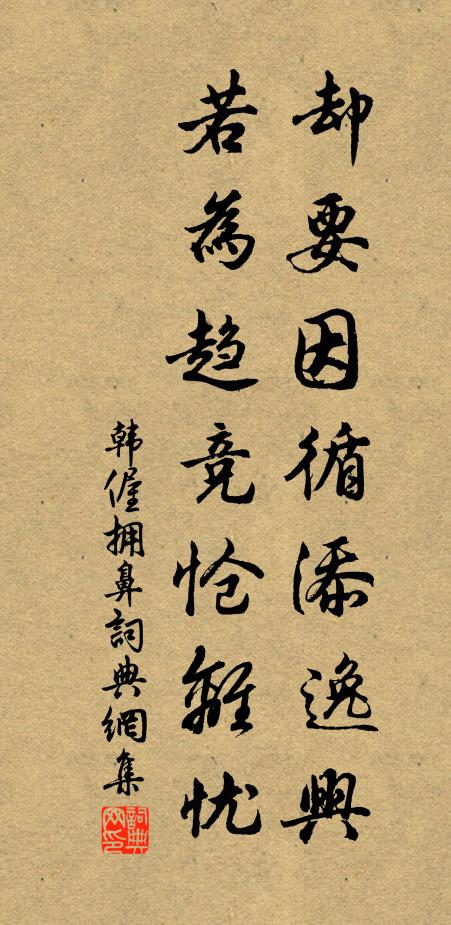 却要因循添逸興
若為趋竞怆離忧
韩偓拥鼻詞典網集
詞典
网印